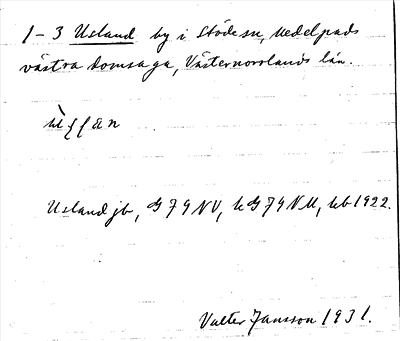 1-3 Usland by i Stöde sn, Medelpads
västra domsaga, Västernorrlands län.
Usland jb, G 79 NV, k G 79 NU, kb 1922.
Valter Jansson 1931.